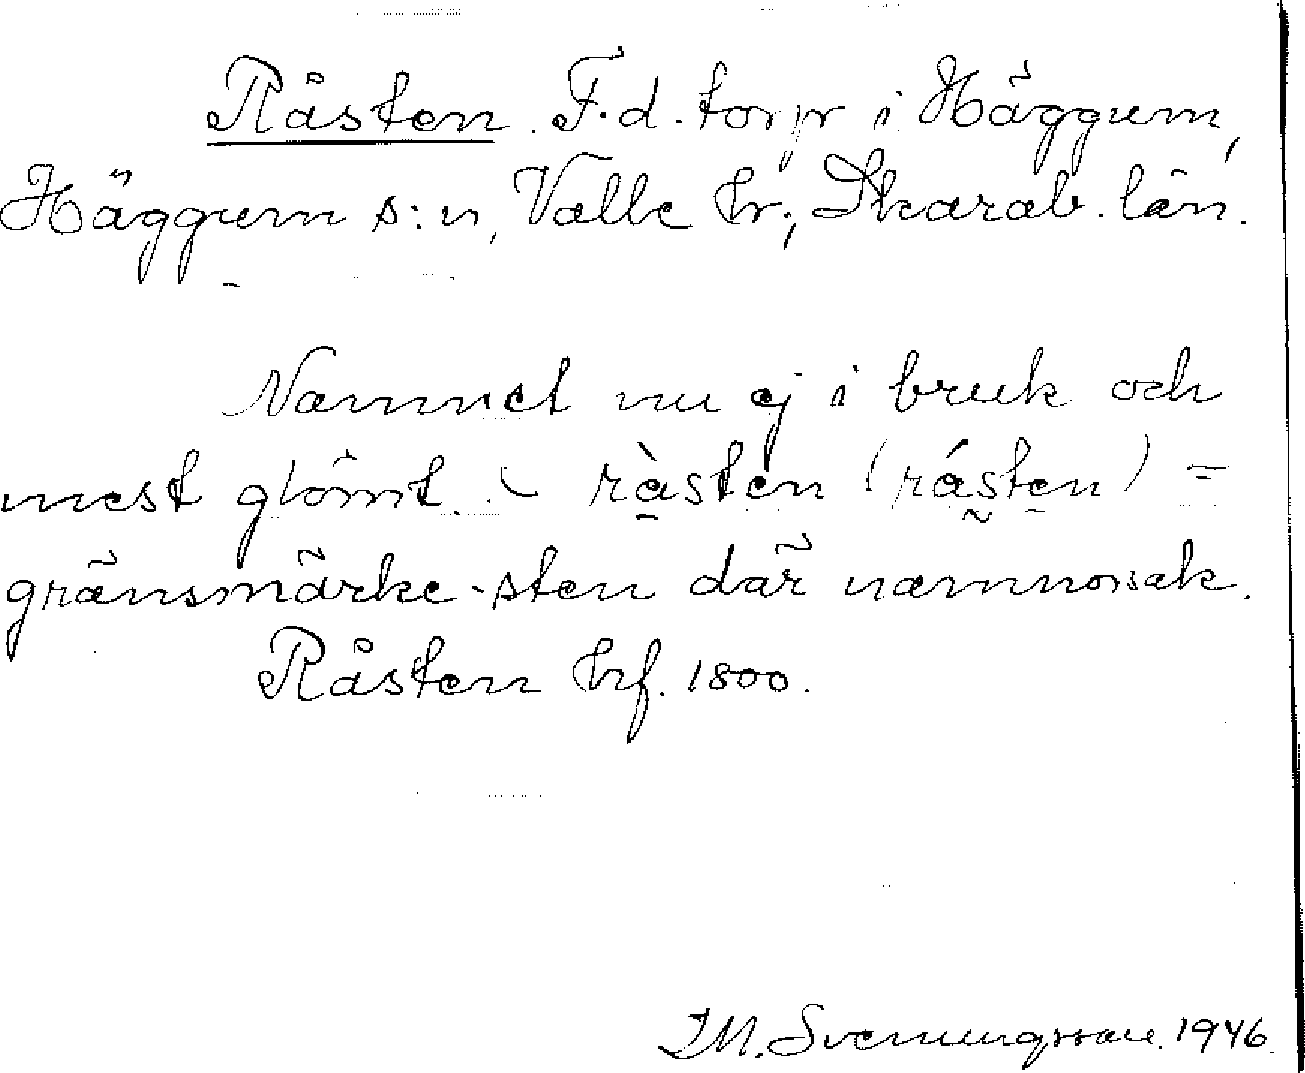 Råsten. F.d. torp i Häggum,
Häggum s:n, Valle hr; Skarab. län.
Namnet nu ej i bruk och
mest glömt. - ràsten (rásten) =
gränsmärke-sten där namnorsak.
Råsten hrf. 1800.
J M. Svenungsson. 1946.